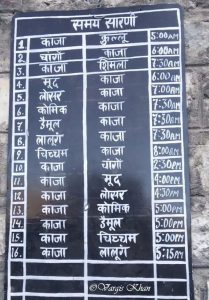 समय सारणी
1. काजा कुल्लू 5:00AM
2. चोंगो काजा 6:00AM
3. काजा शिमला 7:30AM
4. मूद काजा 6:00AM
5. लोसर काजा 7:30AM
6. कोमिक काजा 7:30AM
7. डैमूल काजा 7:30AM
8. लालुंग काजा 7:30AM
9. चिच्चम काजा 8:00AM
10. काजा चोंगो 2:30PM
11. काजा मूद 4:00PM
12. काजा लोसर 4:30PM
13. काजा कोमिक 5:00PM
14. काजा डैमूल 5:00PM
15. काजा चिच्चम 5:00PM
16. काजा लालुंग 5:15AM
© Vargis Khan